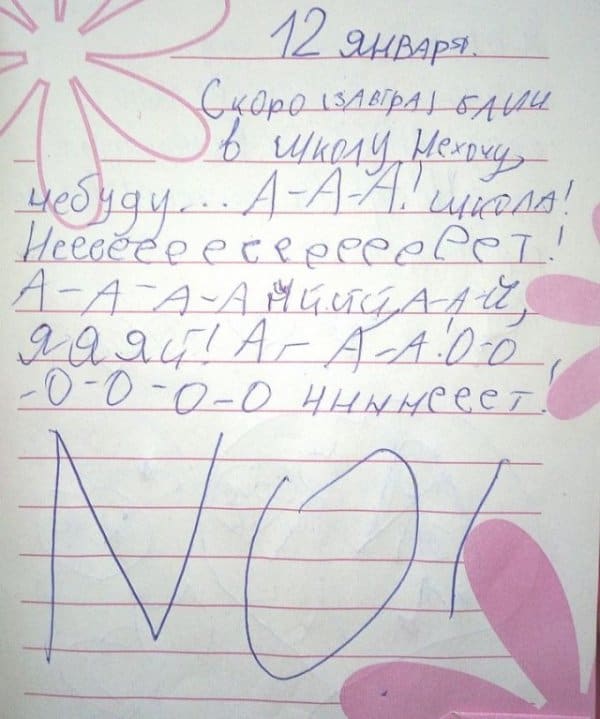 12 января.
Скоро (завтра) блин
в школу. Нехочу,
небуду... А-А-А! школа!
Неееееееееееееееет!
А-А-А-А йййй, А-А-й,
яяяй! А-А-А! О-О
-О-О-О-О ннннееет!
NO!